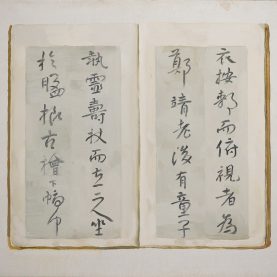 衣按膝而俯視者為
鄭靖老後有童子
執靈壽杖而立二人坐
於盤根古檜下幅巾